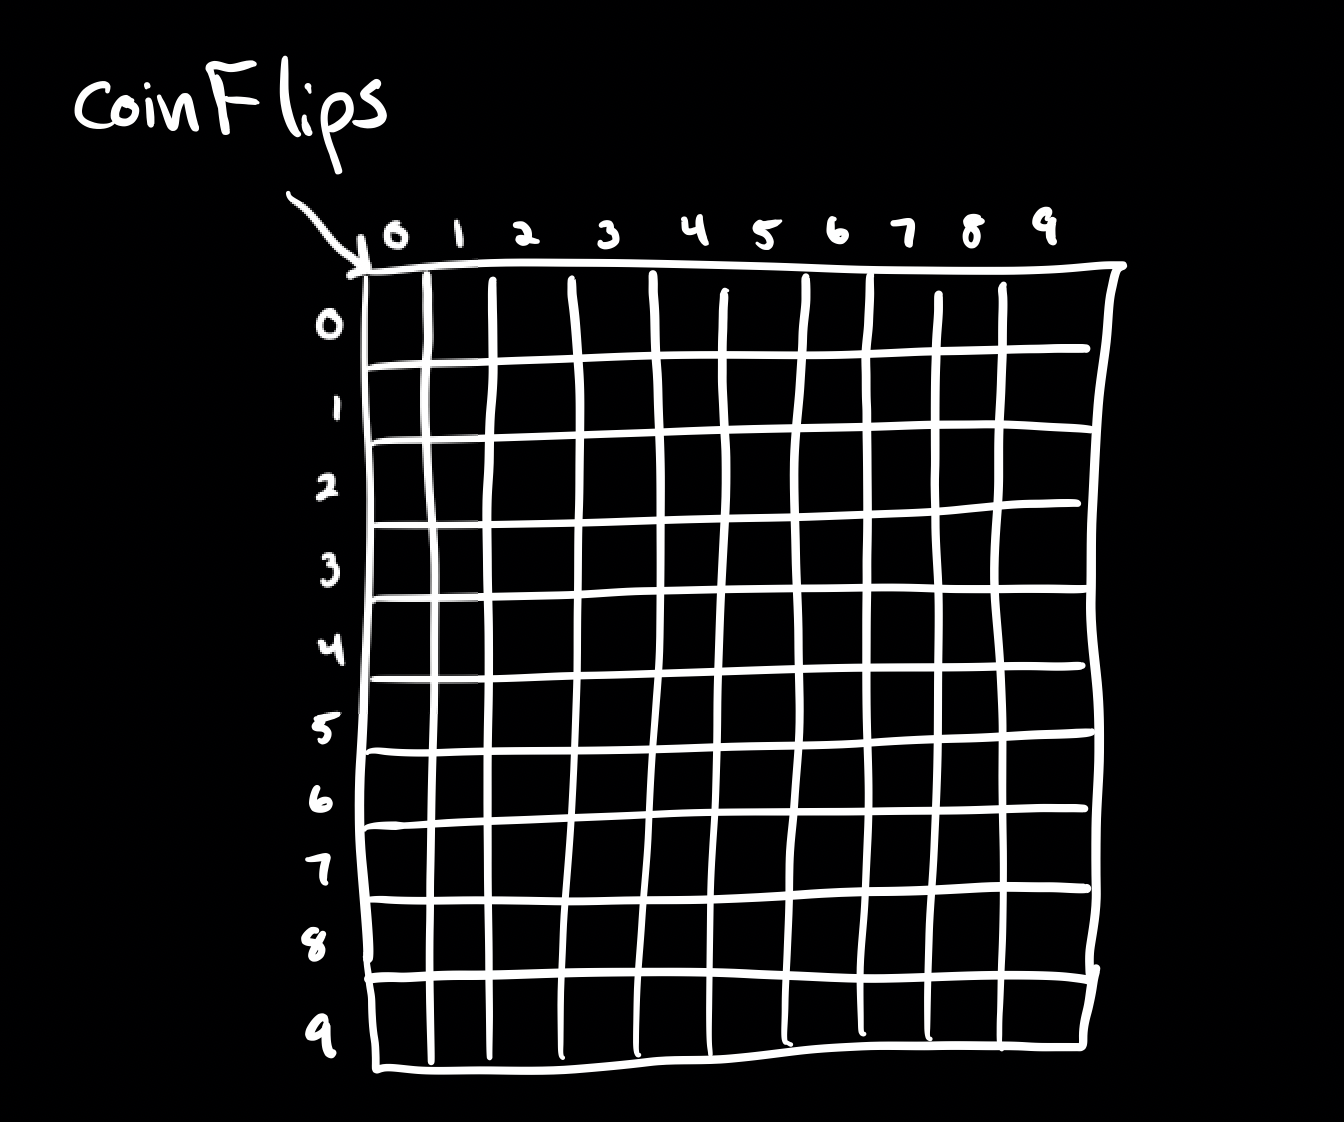 coinFlips
0 1 2 3 4 5 6 7 8 9
0
1
2
3
4
5
6
7
8
9